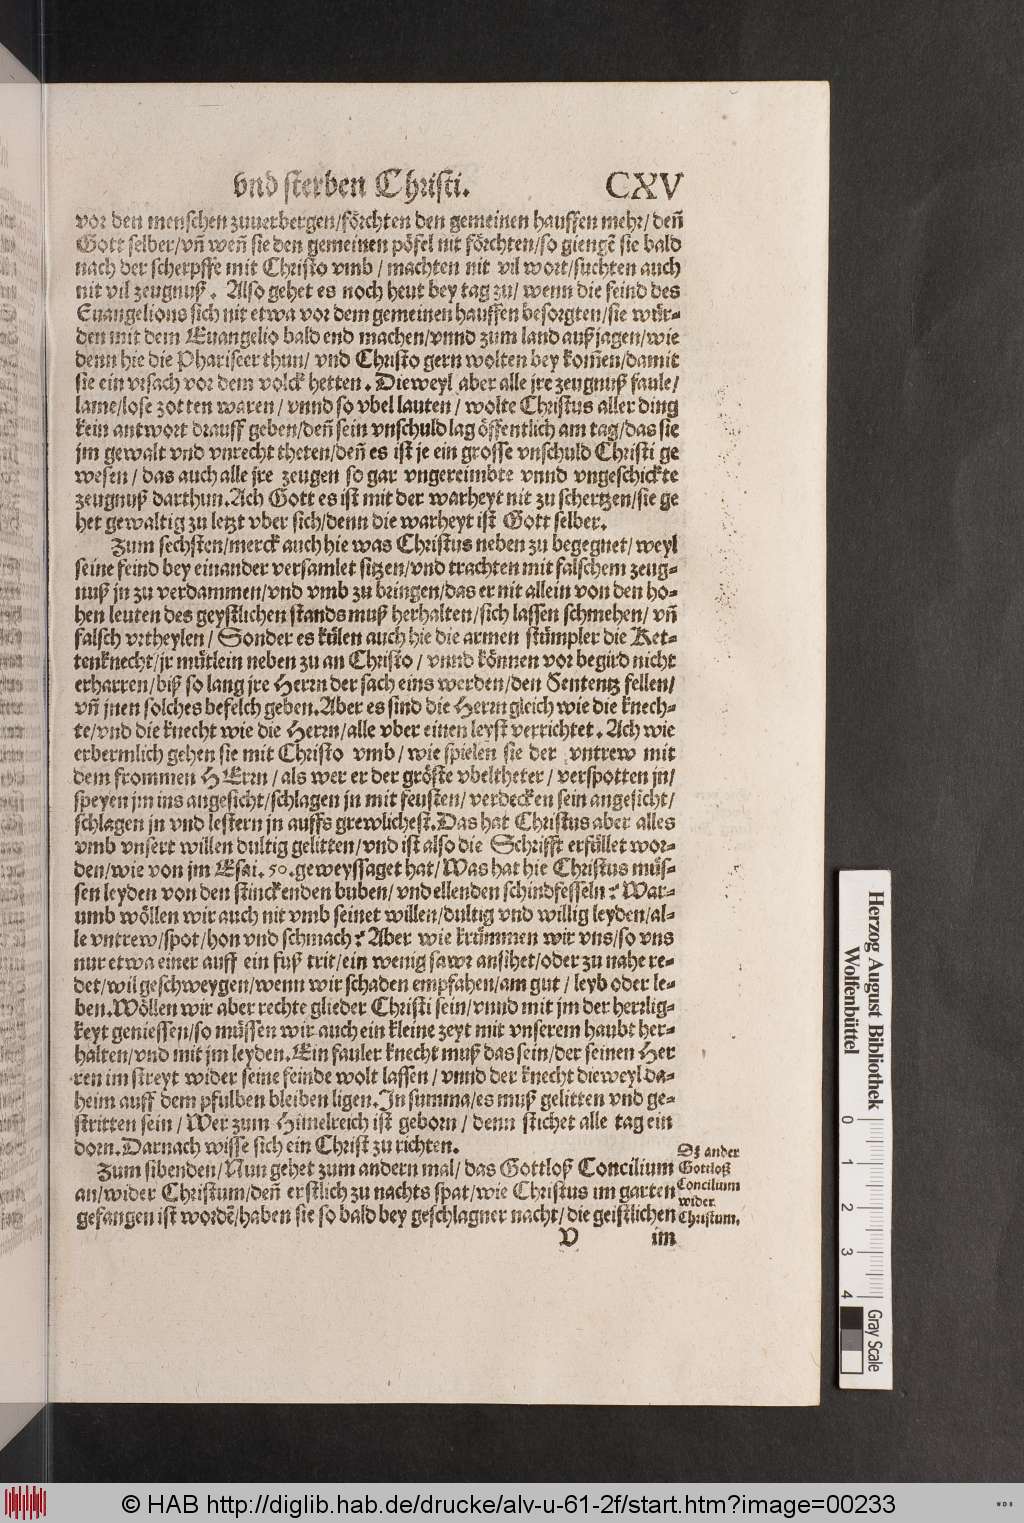 vnd sterben Christi. CXV
vor den menschen zuuerbergen/förchten den gemeinen hauffen mehr/ deñ
Gott selber/vñ weñ sie den gemeinen pöfel nit förchten/so giengẽ sie bald
nach der scherpffe mit Christo vmb / machten nit vil wort/suchten auch
nit vil zeugnuß. Also gehet es noch heut bey tag zu/ wenn die feind des
Euangelions sich nit etwa vor dem gemeinen hauffen besorgten/sie wür-
den mit dem Euangelio bald end machen/vnnd zum land auß jagen/wie
denn hie die Phariseer thun/ vnd Christo gern wolten bey kom̃en/damit
sie ein vrsach vor dem volck hetten. Dieweyl aber alle jre zeugnuß faule/
lame/lose zotten waren / vnnd so vbel lauten / wolte Christus aller ding
kein antwort drauff geben/deñ sein vnschuld lag öffentlich am tag/das sie
jm gewalt vnd vnrecht theten/deñ es ist je ein grosse vnschuld Christi ge
wesen / das auch alle jre zeugen so gar vngereimbte vnnd vngeschickte
zeugnuß darthun. Ach Gott es ist mit der warheyt nit zu schertzen/sie ge
het gewaltig zu letzt vber sich/denn die warheyt ist Gott selber.
Zum sechsten/merck auch hie was Christus neben zu begegnet/ weyl
seine feind bey einander versamlet sitzen/vnd trachten mit falschem zeug-
nuß jn zu verdammen/vnd vmb zu bringen/das er nit allein von den ho-
hen leuten des geystlichen stands muß herhalten/sich lassen schmehen/ vñ
falsch vrtheylen/ Sonder es külen auch hie die armen stümpler die Ket-
tenknecht/jr mütlein neben zu an Christo / vnnd können vor begird nicht
erharren/biß so lang jre Herrn der sach eins werden/den Sententz fellen/
vñ jnen solches befelch geben. Aber es sind die Herrn gleich wie die knech-
te/vnd die knecht wie die Herrn/alle vber einen leyst verrichtet. Ach wie
erbermlich gehen sie mit Christo vmb/ wie spielen sie der vntrew mit
dem frommen HErrn / als wer er der gröste vbeltheter / verspotten jn/
speyen jm ins angesicht/schlagen jn mit feusten/ verdecken sein angesicht/
schlagen jn vnd lestern jn auffs grewlichest. Das hat Christus aber alles
vmb vnsert willen dultig gelitten/vnd ist also die Schrifft erfüllet wor-
den/wie von jm Esai. 50. geweyssaget hat/Was hat hie Christus müs-
sen leyden von den stinckenden buben/ vnd ellenden schindfesseln? War-
umb wöllen wir auch nit vmb seinet willen/dultig vnd willig leyden/al-
le vntrew/spot/hon vnd schmach? Aber wie krümmen wir vns/so vns
nur etwa einer auff ein fuß trit/ein wenig sawr ansihet/oder zu nahe re-
det/wil geschweygen/wenn wir schaden empfahen/am gut / leyb oder le-
ben. Wöllen wir aber rechte glieder Christi sein/vnnd mit jm der herrlig-
keyt geniessen/so müssen wir auch ein kleine zeyt mit vnserem haubt her-
halten/vnd mit jm leyden. Ein fauler knecht muß das sein/der seinen Her
ren im streyt wider seine feinde wolt lassen / vnnd der knecht dieweyl da-
heim auff dem pfulben bleiben ligen. In summa/es muß gelitten vnd ge-
stritten sein / Wer zum Himelreich ist geborn / denn stichet alle tag ein
dorn. Darnach wisse sich ein Christ zu richten.
Zum sibenden/Nun gehet zum andern mal/ das Gottloß Concilium
an/wider Christum/deñ erstlich zu nachts spat/wie Christus im garten
gefangen ist wordẽ/haben sie so bald bey geschlagner nacht/ die geistlichen
V im
Dz ander
Gottloß
Concilium
wider
Christum.
Herzog August Bibliothek
Wolfenbüttel
0 1 2 3 4
Gray Scale
© HAB http://diglib.hab.de/drucke/alv-u-61-2f/start.htm?image=00233